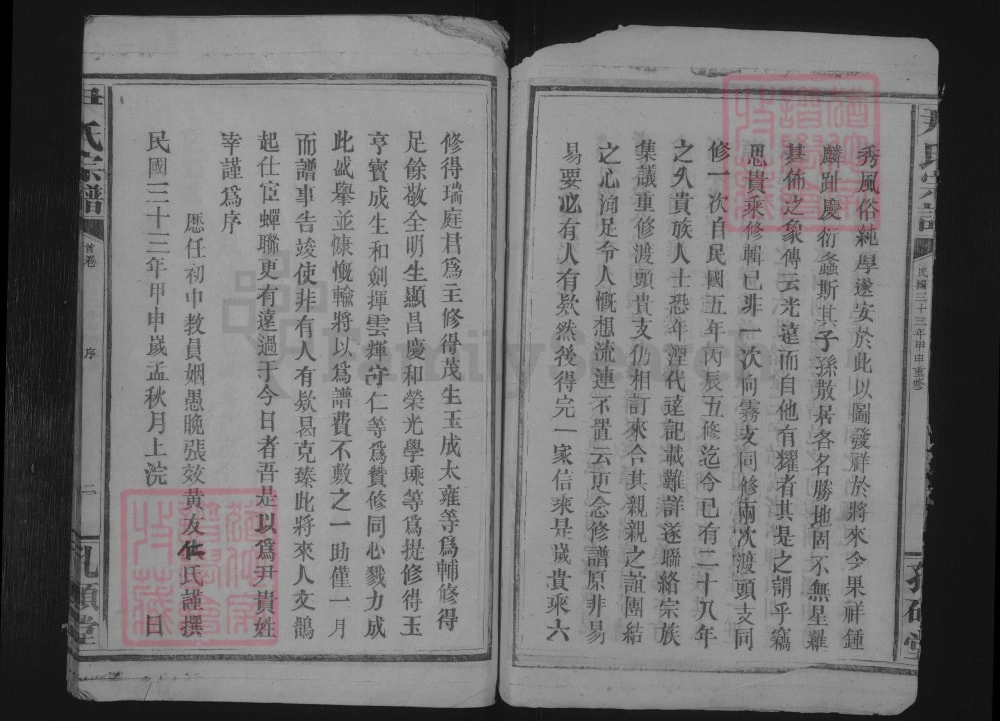 秀風俗純厚遂安於此以圖發祥於將來今果祥鍾
麟趾慶衍螽斯其子孫散居各名勝地固不無星羅
碁佈之象傳云光遠而自他有耀者其是之謂乎竊
思貴乘修輯已非一次向霧支同修兩次渡頭支同
修一次自民國五年丙辰五修迄今已有二十八年
之久貴族人士恐年湮代遠記載難詳遂聯絡宗族
集議重修渡頭貴支仍相訂來合其親親之誼團結
之心洵足令人慨想流連不置云更念修譜原非易
易要必有人有欵然後得完一家信乘是歲貴乘六
尹氏宗譜
民國三十三年甲申重修
尹氏宗譜
首卷
序
二
孔碩堂
修得瑞庭君為主修得茂生玉成太雍等為輔修得
足餘敬全明生顯昌慶和榮光學乘等為提修得玉
亨寳成生和劍揮雲輝守仁等為贊修同心戮力成
此盛舉並慷慨輸將以為譜費不敷之一助僅一月
而譜事告竣使非有人有欵曷克臻此將來人文鵲
起仕宦蟬聯更有遠過于今日者吾是以為尹貴姓
幸謹為序
歷任初中教員姻愚晚張效黄友仁氏謹撰
民國三十三年甲申歲孟秋月上浣 日
FamilySearch